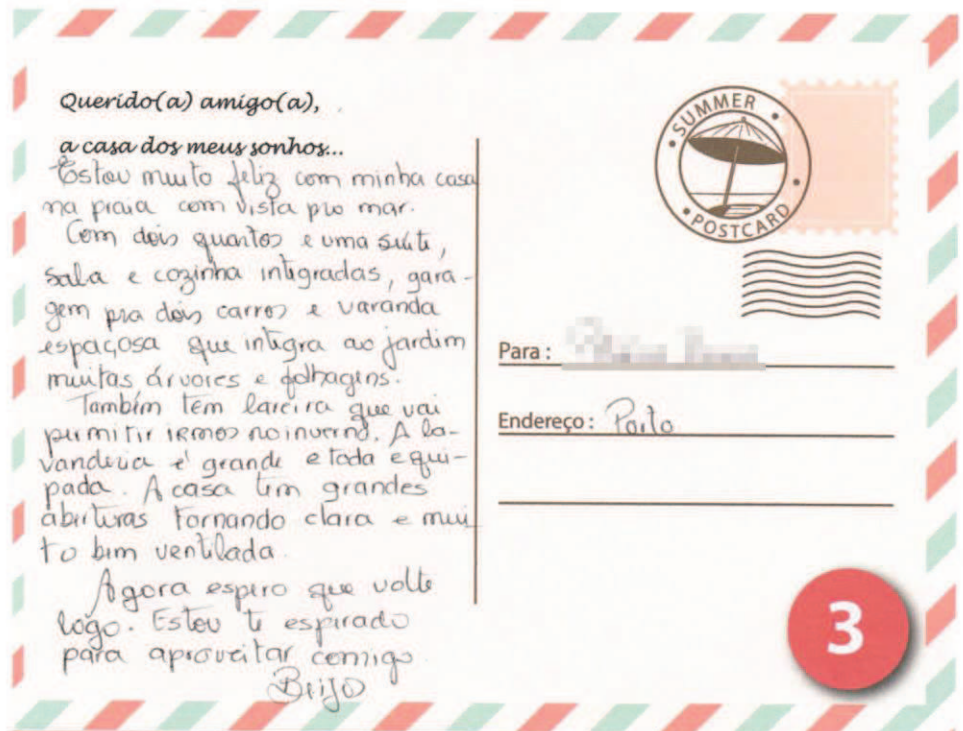 Querido(a) amigo(a),
a casa dos meus sonhos...
Estou muito feliz com minha casa
na praia com vista pro mar.
Com dois quartos e uma suíte,
sala e cozinha integradas, gara-
gem pra dois carros e varanda
espaçosa que integra ao jardim
muitas árvores e folhagens.
Também tem lareira que vai
permitir irmos no inverno. A la-
vanderia é grande e toda equi-
pada. A casa tem grandes
aberturas tornando clara e mui
to bem ventilada.
Agora espero que volte
logo. Estou te espirado
para aproveitar comigo.
Beijo
SUMMER
POSTCARD
Para:
Endereço: Porto
3